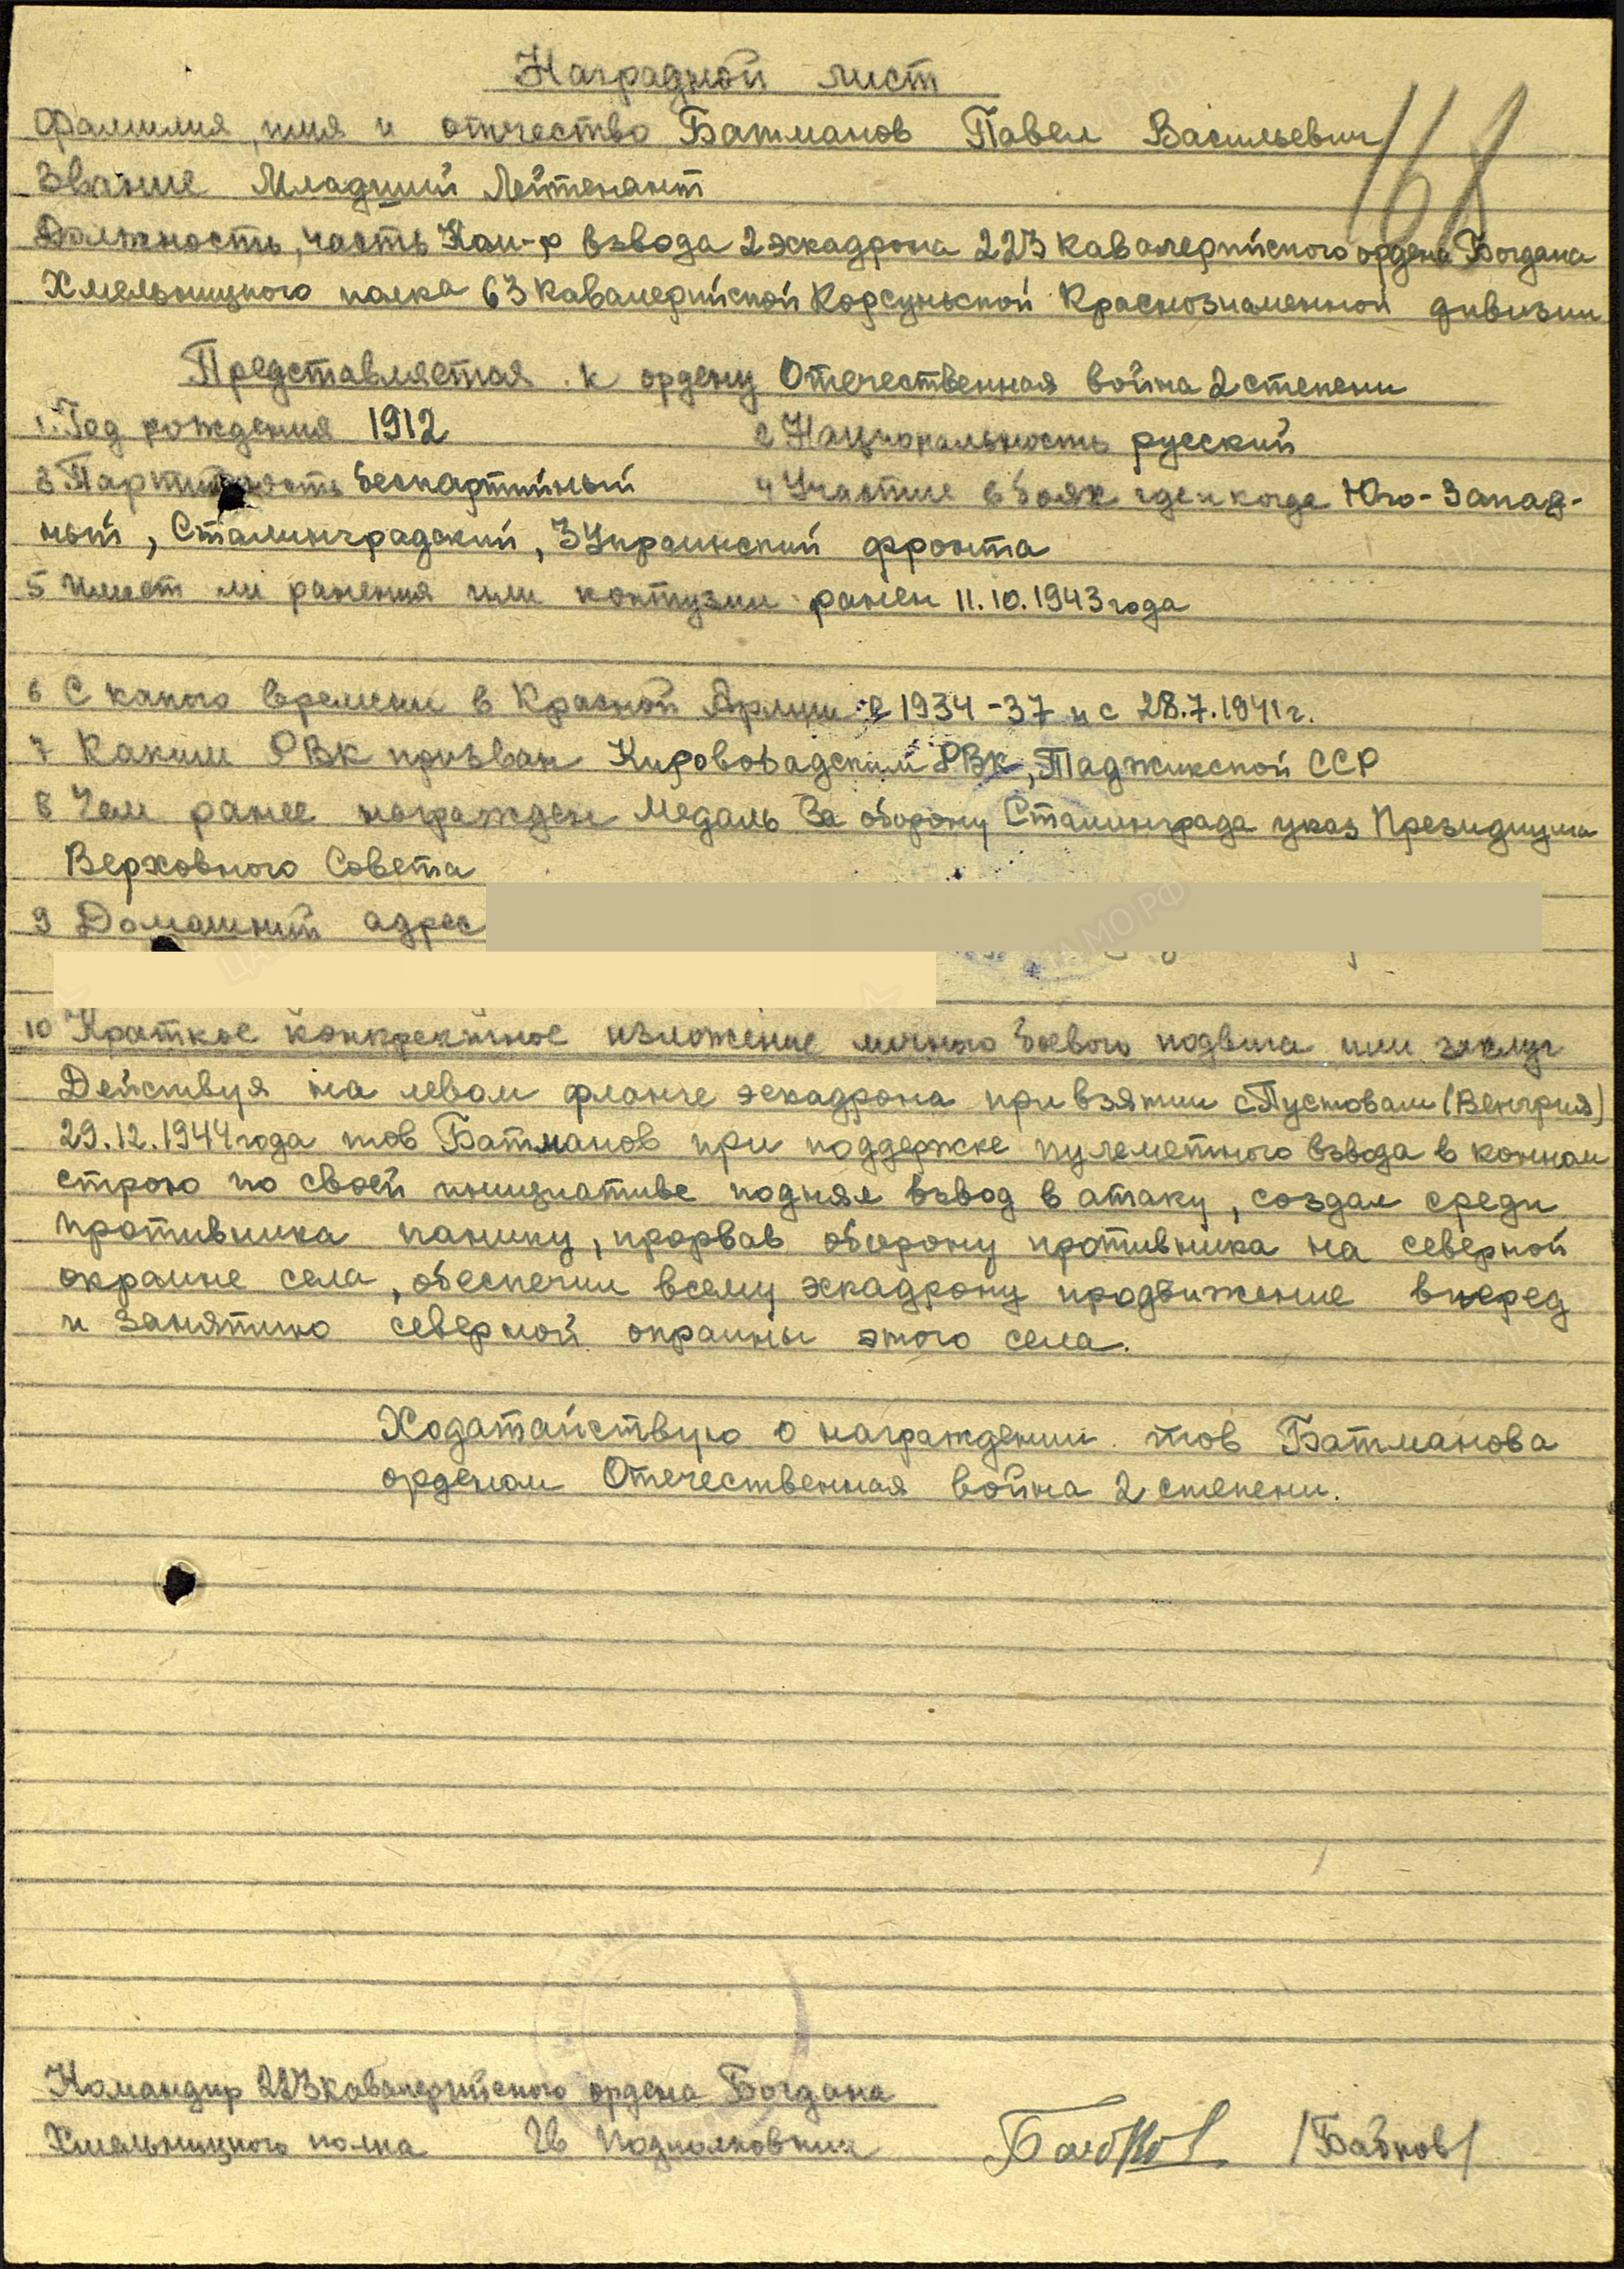 Наградной лист
168
Фамилия, имя и отчество Батманов Павел Васильевич
Звание Младший Лейтенант
Должность, часть Ком-р взвода 2 эскадрона 223 кавалерийского ордена Богдана
Хмельницкого полка 63 кавалерийской Корсуньской Краснознаменной дивизии
Представляется к ордену Отечественная война 2 степени
1. Год рождения 1912 2 Национальность русский
3 Партийность беспартийный 4 Участие в боях где и когда Юго-Запад-
ный, Сталинградский, 3 Украинский фронта
5 Имеет ли ранения или контузии ранен 11.10.1943 года
6 С какого времени в Красной Армии с 1934-37 и с 28.7.1941 г.
7 Каким РВК призван Кировобадским РВК, Таджикской ССР
8 Чем ранее награжден Медаль За оборону Сталинграда указ Президиума
Верховного Совета
9 Домашний адрес
10 Краткое конкретное изложение личного боевого подвига или заслуг
Действуя на левом фланге эскадрона при взятии с Пустовам (Венгрия)
29.12.1944 года тов Батманов при поддержке пулеметного взвода в конном
строю по своей инициативе поднял взвод в атаку, создал среди
противника панику, прорвав оборону противника на северной
окраине села, обеспечил всему эскадрону продвижение вперед
и занятию северной окраины этого села.
Ходатайствую о награждении тов Батманова
орденом Отечественная война 2 степени.
Командир 223 кавалерийского ордена Богдана
Хмельницкого полка Гв Подполковник /Бабков/